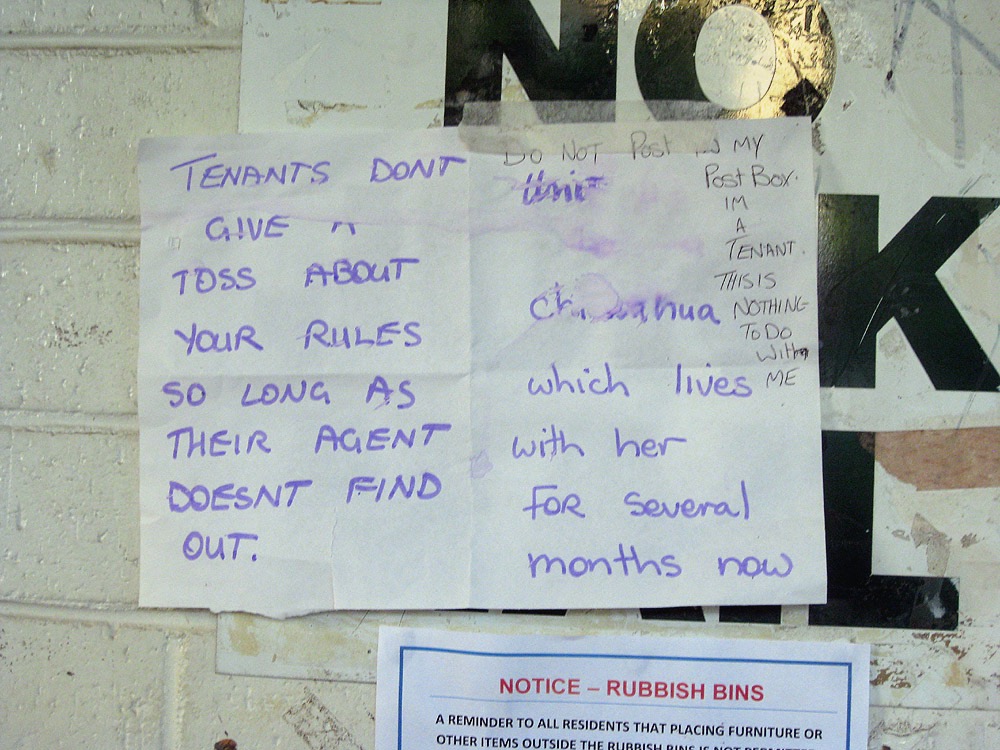 NO
K
TENANTS DONT
GIVE
TOSS ABOUT
YOUR RULES
SO LONG AS
THEIR AGENT
DOESNT FIND
OUT.
DO NOT POST IN MY
POST BOX.
IM
A
TENANT.
THIS IS
NOTHING
TO DO
WITH
ME
Unit
which lives
with her
FOR several
months now
NOTICE – RUBBISH BINS
A REMINDER TO ALL RESIDENTS THAT PLACING FURNITURE OR
OTHER ITEMS OUTSIDE THE RUBBISH BINS IS NOT